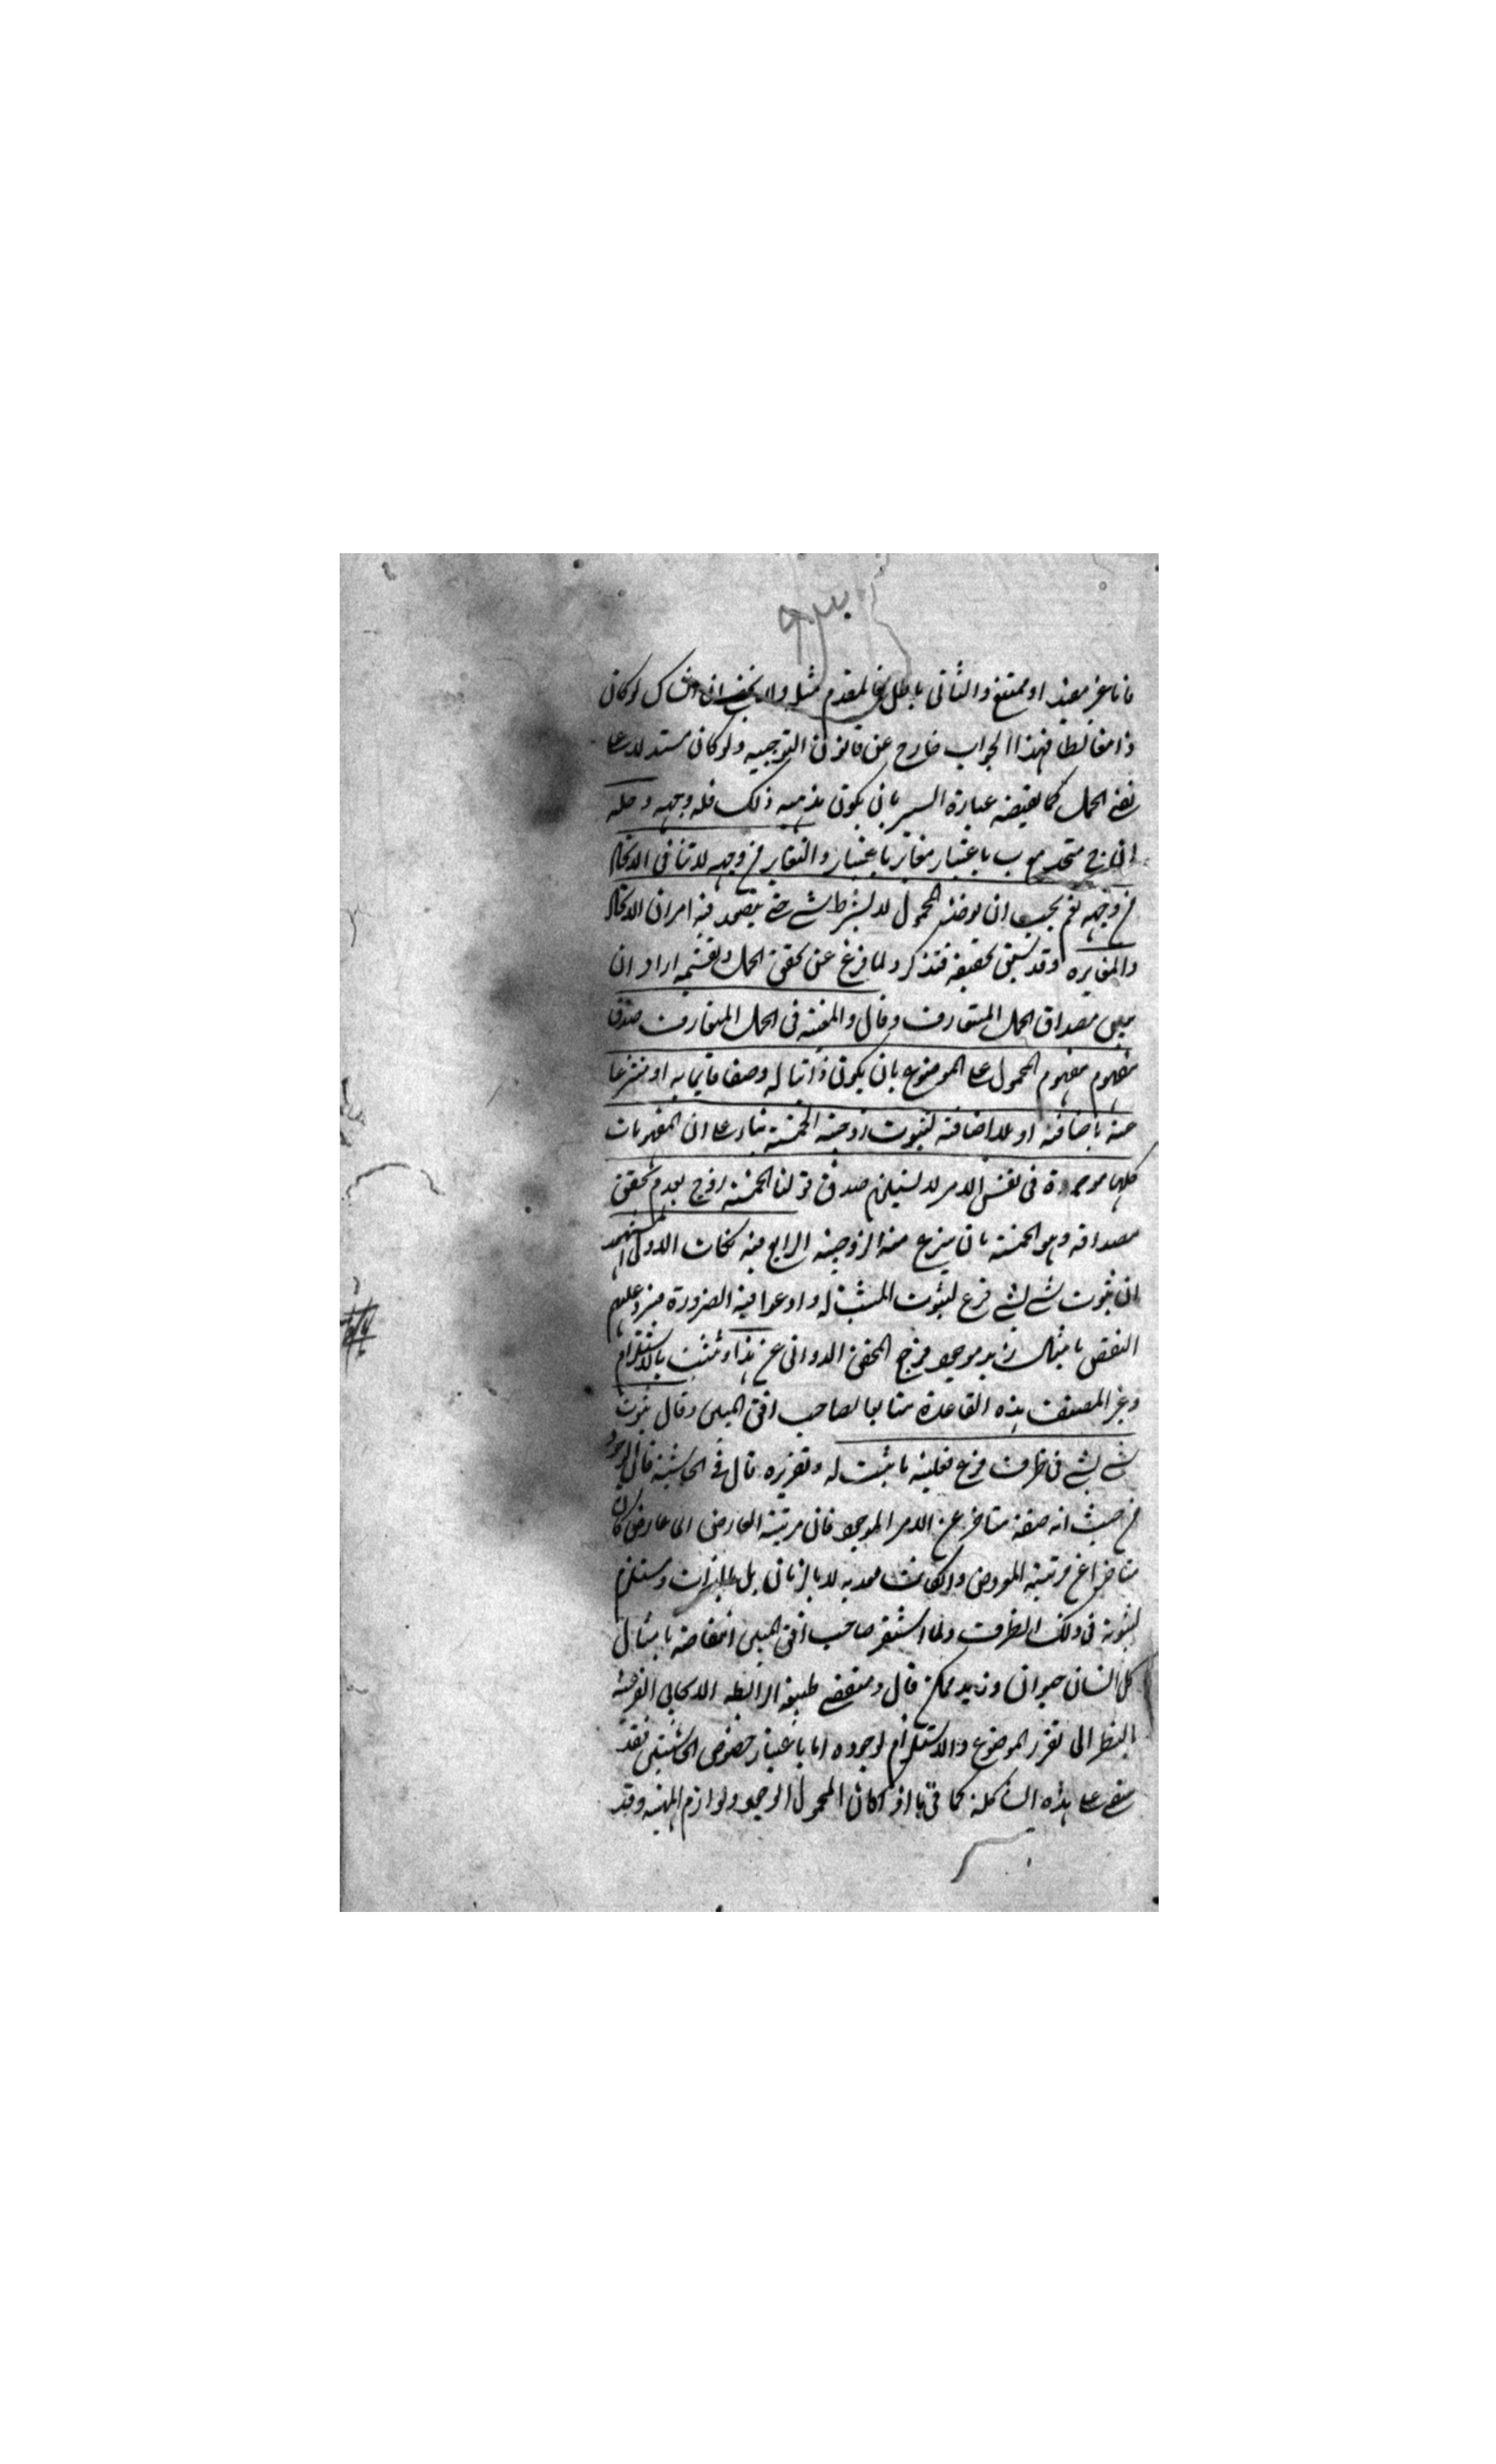 فاما غير مفيد او ممتنع والثاني باطل فالمقدم مثله ولا يخفى ان الشاك لو كان
ذا مغالطا فهذا الجواب خارج عن قانون التوجيه ولو كان مستدلا على
نفي الحمل كما يقتضيه عبارة السير بان يكون مذهبه ذلك فله وجهه وحله
ان ج متحد مع ب باعتبار مغاير باعتبار والتغاير من وجه لا تنافي الاتحاد
من وجه نعم يجب ان يؤخذ المحمول لا بشرط شئ حتى يتصور فيه امران الاتحاد
والمغايرة وقد سبق تحقيقه فتذكر ولما فرغ عن تحقيق الحمل وتقسيمه اراد ان
يبين مصداق الحمل المتعارف وقال والمعتبر في الحمل المتعارف صدق
مفهوم مفهوم المحمول على الموضوع بان يكون ذاتيا له وصفا قائما به او منتزعا
عنه باضافة او بلا اضافة لثبوت زوجية الخمسة بناء على ان المفهومات
كلها موجودة في نفس الامر لا يستلزم صدق قولنا الخمسة زوج لعدم تحقق
مصداقه وهو الخمسة بان ينتزع منه الزوجية الرابع فيه نكات الاولى اشتهر
ان ثبوت شئ لشئ فرع لثبوت المثبت له وادعوا فيه الضرورة فيرد عليهم
النقض بامثال زيد موجود فخرج المحقق الدواني عن هذا وتشبث بالاستلزام
وغير المصنف هذه القاعدة متابعا لصاحب افق المبين وقال ثبوت
شئ لشئ في ظرف فرع فعلية ما ثبت له وتقرره قال في الحاشية فان الوجود
من حيث انه صفة متاخر عن الامر الموجود فان مرتبة العارض اي عارض كان
متاخرا عن مرتبة المعروض وان كانت معه لا بالزمان بل بالذات ومستلزم
لثبوته في ذلك الظرف ولما استشعر صاحب افق المبين انتقاضه بامثال
كل انسان حيوان وزيد ممكن قال ومقتضى طبيعة الرابطة الايجابي الفرعية
بالنظر الى تقرر الموضوع والاستلزام لوجوده اما باعتبار خصوص الحاشيتين فقد
يبقى على هذه الشاكلة كما في ما اذا كان المحمول الوجود ولوازم المهية وقد